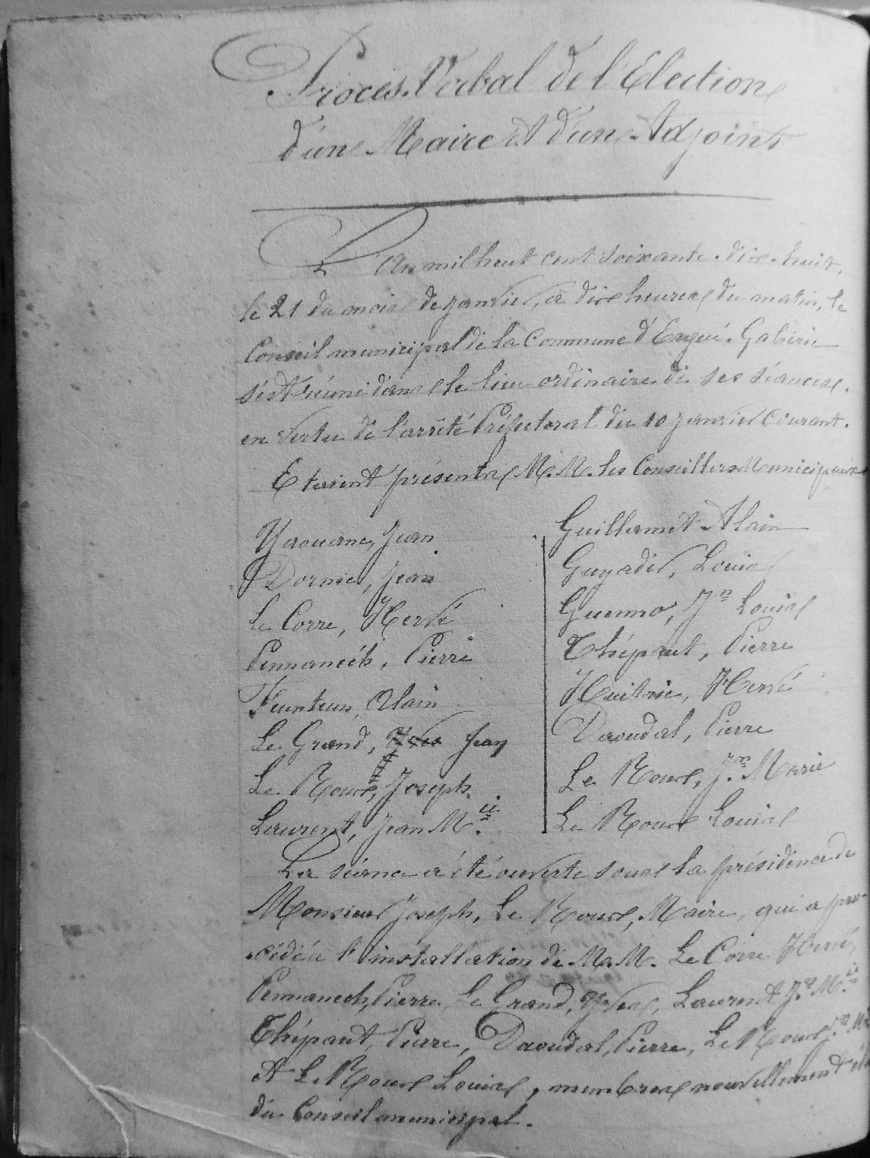 Procès-Verbal de l'Election
d'un Maire et d'un Adjoint
L'An mil huit cent soixante-dix-huit,
le 21 du mois de janvier, à dix heures du matin, le
Conseil municipal de la Commune d'Ergué-Gabéric
s'est réuni dans le lieu ordinaire de ses séances,
en vertu de l'arrêté Préfectoral du 10 janvier courant.
Etaient présents M.M. les Conseillers Municipaux
Yaouanc, Jean
Dornic, Jean
Le Corre, Hervé
Pennanéch, Pierre
Feunteun, Alain
Le Grand, Yves Jean
Le Roux, Joseph
Laurent, Jean M.ie
Guillamet Alain
Guyader, Louis
Guenno, Jn Louis
Thépaut, Pierre
Huitric, Hervé
Daoudal, Pierre
Le Roux, Jn Marie
Le Roux Louis
La séance a été ouverte sous la présidence de
Monsieur Joseph, Le Roux, Maire, qui a pro-
cédé à l'installation de M.M. Le Corre Hervé,
Pennanech, Pierre, Le Grand, Yves, Laurent Jn M.ie
Thépaut, Pierre, Daoudal, Pierre, Le Roux, Jn
Et Le Roux Louis, membres nouvellement
du Conseil municipal.